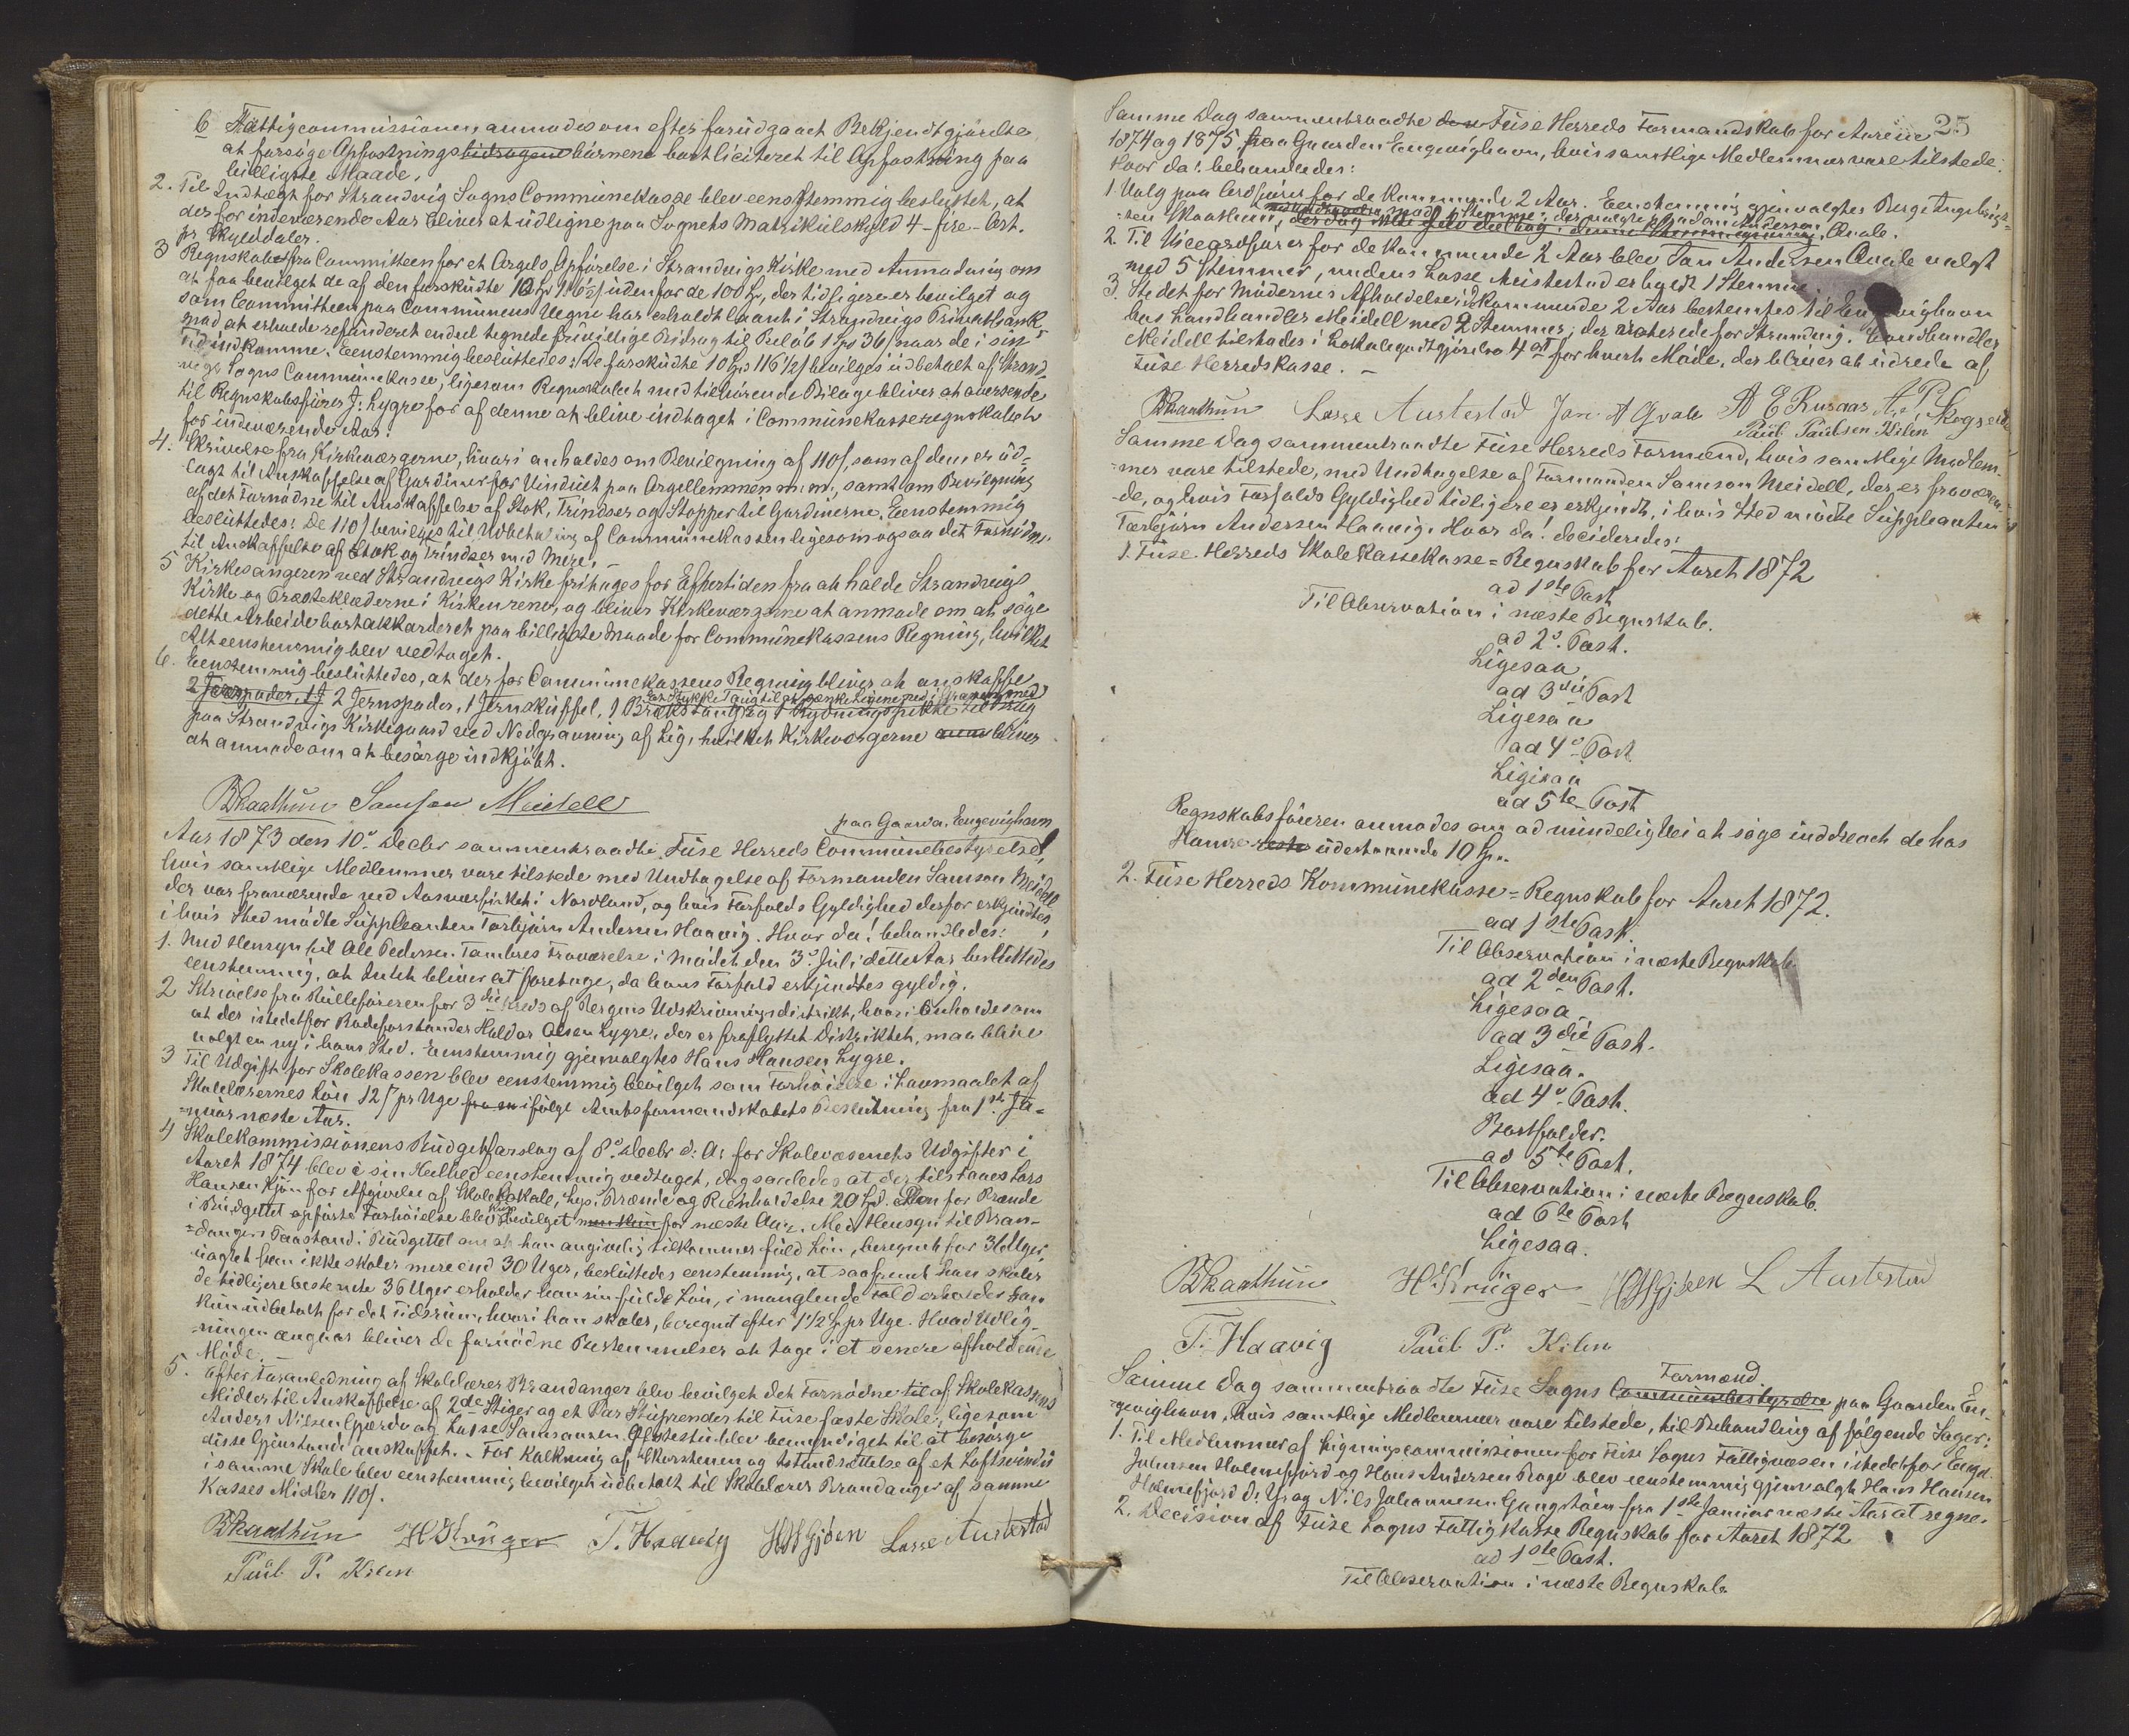 6 Fattigcommissionen anmodes om efter forudgaaet Bekjendtgjörelse
at forsöge Opfostringsbidragene börnene bortliciteret til Opfostring paa
billigste Maade.
2. Til Indtægt for Strandvig Sogns Communekasse blev eenstemmig besluttet, at
der for indeværende Aar bliver at udligne paa Sognets Matrikulskyld 4 - fire - Ort.
pr Skylddaler.
3 Regnskabet fra Committeen for et Orgels Opförelse i Strandvigs Kirke med Anmodning om
at faa bevilget de af dem forskudte 10 Spd 116½ s udenfor de 100 Spd, der tidligere er bevilget og
som Committeen paa Communens Vegne har erholdt laant i Strandvigs Privatbank
mod at erholde refunderet endel tegnede frivillige Bidrag til Belöb 1 Spd 36 s naar de i sin
Tid indkomme. Eenstemmig besluttedes: De forskudte 10 Spd 116½ s bevilges udbetalt af Strand-
vigs Sogns Communekasse, ligesom Regnskabet med tilhörende Bilage bliver at oversende
til Regnskabsförer J: Lygre for af denne at blive indtaget i Communekasseregnskabet
for indeværende Aar.
4. Skrivelse fra Kirkeværgerne, hvori anholdes om Bevilgning af 110 s, som af dem er ud-
lagt til Anskaffelse af Gardiner for Vinduet paa Orgellemmen m. m., samt om Bevilgning
af det Fornödne til Anskaffelse af Stok, Trindser og Stopper til Gardinerne. Eenstemmig
besluttedes: De 110 s bevilges til Udbetaling af Communekassen ligesom ogsaa det Fornödne
til Anskaffelse af Stok og Trindser med Mere. -
5 Kirkesangeren ved Strandvigs Kirke fritages for Eftertiden fra at holde Strandvigs
Kirke og Præsteklæderne i Kirken rene, og bliver Kirkeværgerne at anmode om at söge
dette Arbeide bortakkorderet paa billigste Maade for Communekassens Regning, hvilket
Alt eenstemmig blev vedtaget.
6. Eenstemmig besluttedes, at der for Communekassens Regning bliver at anskaffe
2 Jernspader, 1 J 2 Jernspader, 1 Jernskuffel, 1 Brækstang og 1 Rydningshakke til Brug
et Stykke Taug til at sænke Ligene ned i Graven med
paa Strandvigs Kirkegaard ved Nedgravning af Lig, hvilket Kirkeværgerne bliver
at anmode om at besörge indkjöbt.
BSkaathun Samson Meidell
paa Gaarden Engevighavn
Aar 1873 den 10de Decbr sammentraadte Fuse Herreds Communebestyrelse,
hvis samtlige Medlemmer vare tilstede med Undtagelse af Formanden Samson Meidell
der var fraværende ved Aarsverfisket i Nordland, og hvis Forfalds Gyldighed derfor erkjendtes,
i hvis Sted mödte Suppleanten Torbjörn Andersen Haavig. Hvor da! behandledes:
1. Med Hensyn til Ole Pedersen Tombres Fraværelse i Mödet den 3de Juli dette Aar besluttedes
eenstemmig, at Intet bliver at foretage, da hans Forfald erkjendtes gyldig.
2 Skrivelse fra Rulleföreren for 3die Kreds af Bergens Udskrivningsdistrikt, hvori Anholdes om
at der istedetfor Rodeforstander Haldor Olsen Lygre, der er fraflyttet Distriktet, maa blive
valgt en ny i hans Sted. Eenstemmig gjenvalgtes Hans Hansen Lygre.
3 Til Udgift for Skolekassen blev eenstemmig bevilget som Forhöielse i Lovmaalet af
Skolelærernes Lön 12 s pr Uge fra en ifölge Amtsformandskabets Beslutning fra 1ste Ja-
=nuar næste Aar.
4 Skolekommissionens Budgetforslag af 8de Decbr d: A: for Skolevæsenets Udgifter i
Aaret 1874 blev i sin Helhed eenstemmig vedtaget, dog saaledes at der tilstaaes Lars
Hansen Kjön for Afgivelse af SkoleLokale, Lys, Brænde og Renholdelse 20 Spd. Den for Brænde
i Budgettet opförte Forhöielse blev kun bevilget for næste Aar. Med Hensyn til Bran-
=dangers Paastand i Budgettet om at han angivelig tilkommer fuld Lön, beregnet for 36 Uger,
uagtet han ikke skoler mere end 30 Uger, besluttedes eenstemmig, at saafremt han skoler
de tidligere bestemte 36 Uger erholder han sin fulde Lön, i manglende Fald erholder han
kun udbetalt for det Tidsrum, hvori han skoler, beregnet efter 1½ Sp pr Uge. Hvad Udlig-
=ningen angaar bliver de fornödne Bestemmelser at tage i et senere afholdende
Möde.
5. Efter Foranledning af Skolelærer Brandanger blev bevilget det Fornödne til af Skolekassens
Midler til Anskaffelse af 2de Stiger og et Par Stüprender til Fuse faste Skole, ligesom
Anders Nilsen Gjærde og Lasse Samsonsen blev bemyndiget til at besörge
disse Gjenstande anskaffet. - For Kalkning af Skorstenen og Istandsættelse af et Loftsvindu
i samme Skole blev eenstemmig bevilget udbetalt til Skolelærer Brandanger af samme
Kasses Midler 110 s.
BSkaathun HSKrüger T. Haavig HHGjöen Lasse Austestad
Paül P. Kilen
25
Samme Dag sammentraadte Fuse Herreds Formandskab for Aarene
1874 og 1875 paa Gaarden Engevighavn, hvis samtlige Medlemmer vare tilstede.
hvor da! behandledes:
1. Valg paa Ordförer for de kommende 2 Aar. Eenstemmig gjenvalgtes Berge Engebrigt-
=sen Skaathun, Qvale.
2. Til Viceordförer for de kommende 2 Aar blev Jan Andersen Qvale valgt
med 5 Stemmer, medens Lasse Austestad erholdt 1 Stemme.
3. Stedet for Mödernes Afholdelse i de kommende 2 Aar bestemtes til Engevighavn
hos Landhandler Meidell med 2 Stemmer, der voterede for Strandvig. Landhandler
Meidell tilstodes i Lokalegodtgjörelse 4 ort for hvert Möde, der bliver at udrede af
Fuse Herredskasse. -
BSkaathun Lasse Austestad Jan A Qvale A E Rusaas A. P. Skogseide
Paul Paulsen Kilen
Samme Dag sammentraadte Fuse Herreds Formænd, hvis samtlige Medlem-
=mer vare tilstede, med Undtagelse af Formanden Samson Meidell, der er fraværen-
=de, og hvis Forfalds Gyldighed tidligere er erkjendt, i hvis Sted mödte Suppleanten
Torbjörn Andersen Haavig. Hvor da! decideredes:
1. Fuse Herreds Skolekassekasse=Regnskab for Aaret 1872
ad 1ste Post
Til Observation i næste Regnskab.
ad 2den Post.
Ligesaa
ad 3die Post
Ligesaa
ad 4de Post
Ligesaa
ad 5te Post
Regnskabsföreren anmodes om ad mindelig Vei at söge inddreven de hos
Hauge udestaaende 10 Sp.
2. Fuse Herreds Kommunekasse=Regnskab for Aaret 1872.
ad 1ste Post.
Til Observation i næste Regnskab.
ad 2den Post.
Ligesaa
ad 3die Post.
Ligesaa.
ad 4de Post.
Bortfalder.
ad 5te Post.
Til Observation i næste Regnskab.
ad 6te Post
Ligesaa.
BSkaathun HSKrüger HHGjöen L Austestad
T. Haavig Paül P. Kilen
Formænd
Samme Dag sammentraadte Fuse Sogns Communebestyrelse paa Gaarden En-
=gevighavn, hvis samtlige Medlemmer vare tilstede, til Behandling af fölgende Sager:
1. Til Medlemmer af Ligningscommissionen for Fuse Sogns Fattigvæsen istedetfor Engel
Johnsen Holmefjord og Hans Andersen Drage blev eenstemmig gjenvalgt Hans Hansen
Holmefjord d: Y: og Nils Johannesen Gangstöen fra 1ste Januar næste Aar at regne.
2. Decision af Fuse Sogns Fattigkasse Regnskab for Aaret 1872
ad 1ste Post.
Til Observation i næste Regnskab